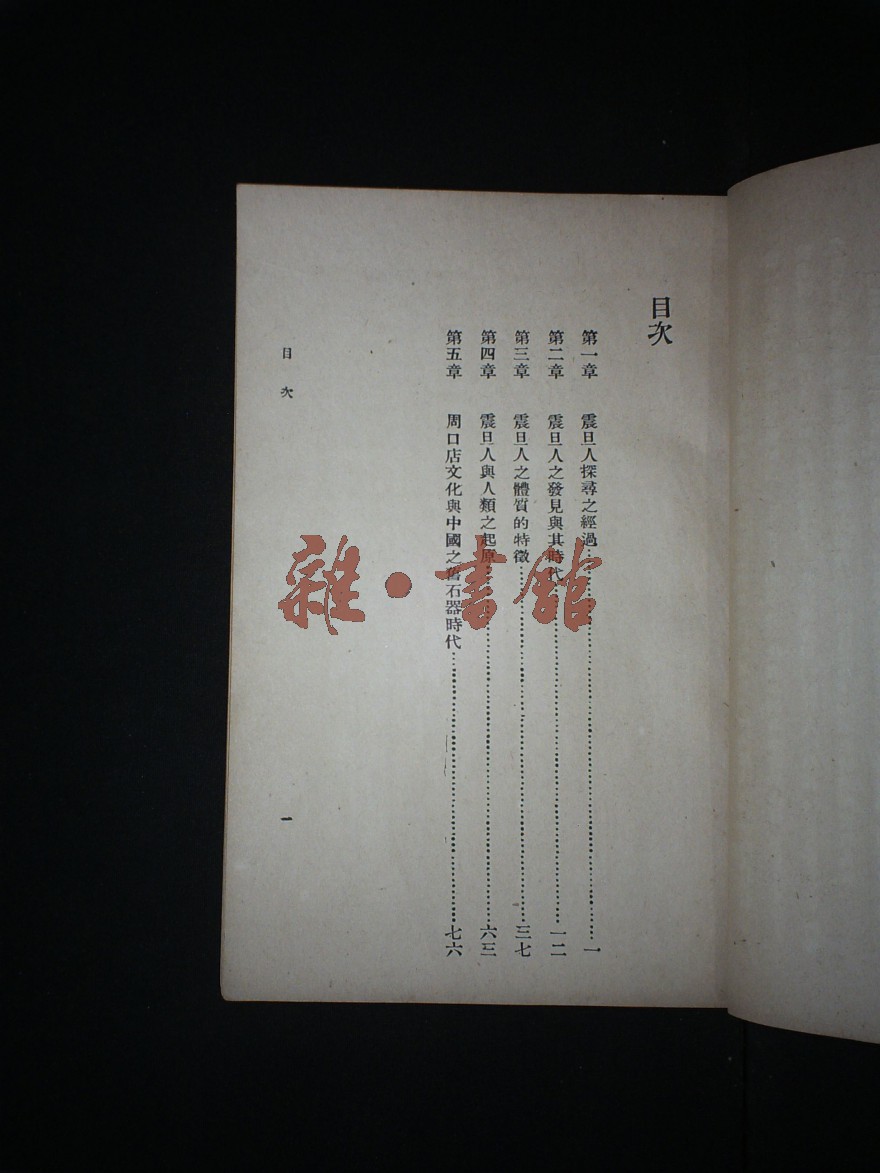 目次
第一章 震旦人探尋之經過……一
第二章 震旦人之發見與其時代……一二
第三章 震旦人之體質的特徵……三七
第四章 震旦人與人類之起原……六三
第五章 周口店文化與中國之舊石器時代……七六
目次
一
雜·書館